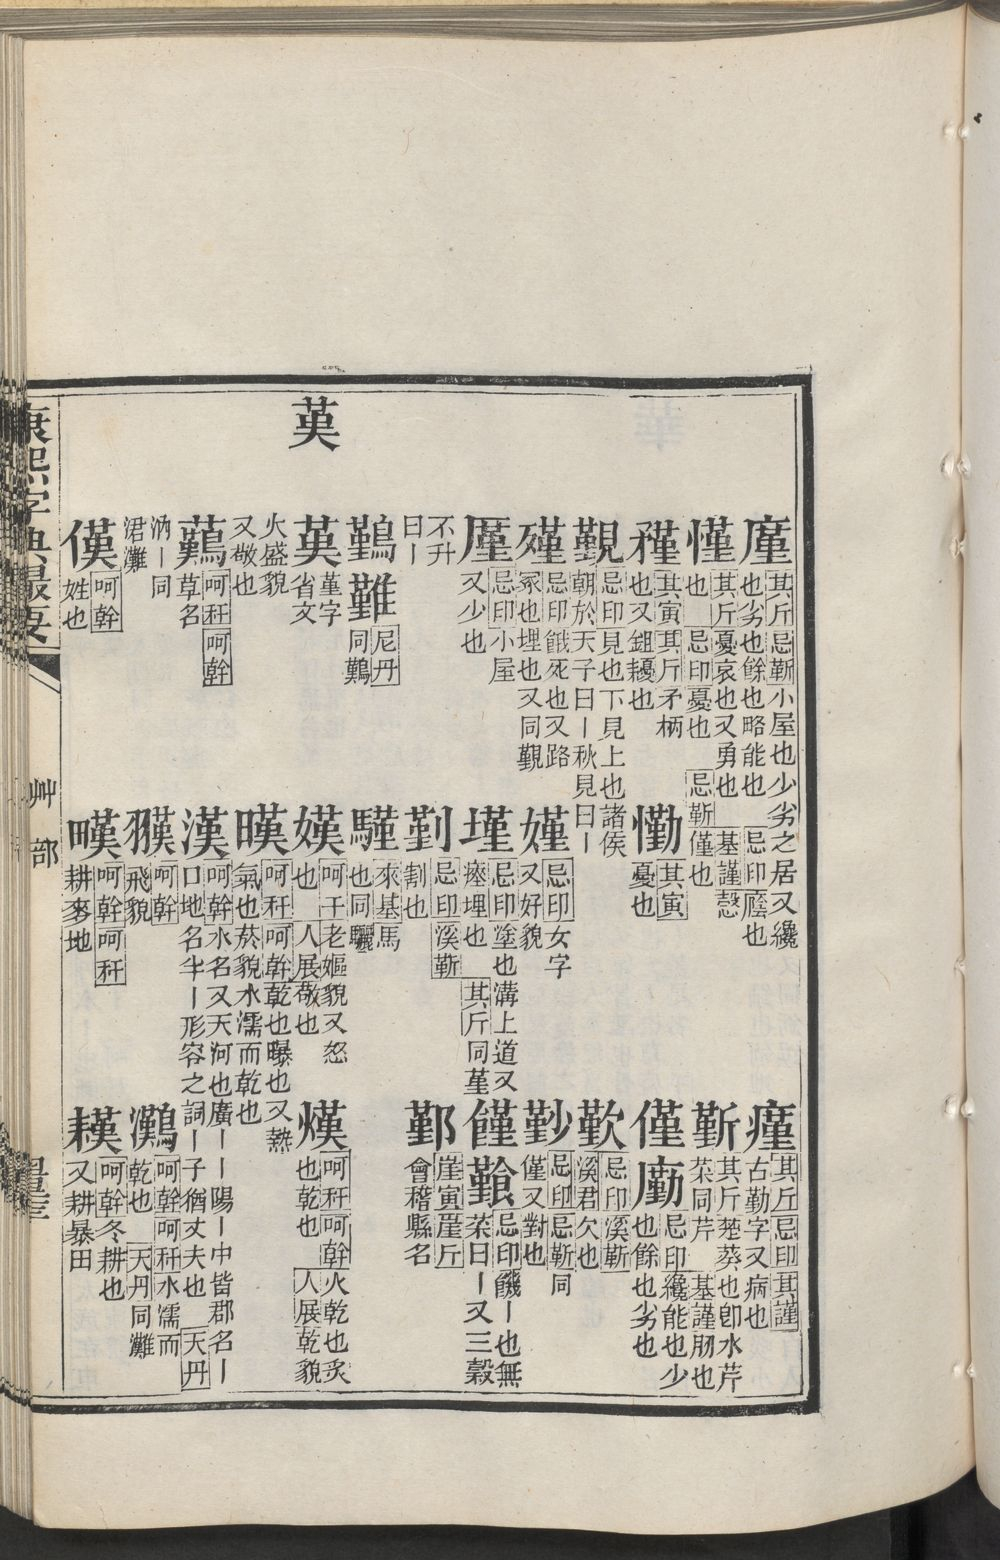 廑 其斤 忌靳 小屋也少劣之居又纔也劣也餘也略能也 忌印 廕也
懂 其斤 憂哀也又勇也 基謹 愨也 忌印 憂也 忌靳 僅也
矜 其寅 其斤 矛柄也又鉏耰也
覲 忌印 見也下見上也諸侯朝於天子曰丨秋見曰丨
殣 忌印 餓死也又路冢也埋也又同覲
厪 忌印 小屋又少也
不升曰丨
鷬 難 尼丹 同鷬
𦰩 堇字省文
火盛貌又敬也
呵秆 呵幹 草名
汭丨同涒灘
㒈 呵幹 姓也
慟 其寅 憂也
嫤 忌印 女字又好貌
墐 忌印 塗也溝上道又瘞埋也 其斤 同堇
忌印 溪靳 割也
來基 馬也同驪
嫨 呵干 老嫗貌又怒也 人展 敬也
暵 呵秆 呵幹 乾也曝也又熱氣也菸貌水濡而乾也
漢 呵幹 水名又天河也廣丨丨陽丨中皆郡名丨口地名半丨形容之詞丨子猶丈夫也 天丹
呵幹 飛貌
呵幹 呵秆 耕麥地
瘽 其斤 忌印 其謹 古勤字又病也
斳 其斤 楚葵也卽水芹菜同芹 基謹 胏也
僅 廑 忌印 纔能也少也餘也劣也
歏 忌印 溪靳 溪君 欠也
忌印 忌靳 同僅又對也
饉 忌印 饑丨也無菜曰丨又三穀
不升曰丨
鄞 崖寅 崖斤 會稽縣名
熯 呵秆 呵幹 火乾也炙也乾也 人展 乾貌
灘 呵幹 呵秆 水濡而乾也 天丹 同灘
耯 呵幹 冬耕也又耕暴田
𦰩
康熙字典最要
艸部